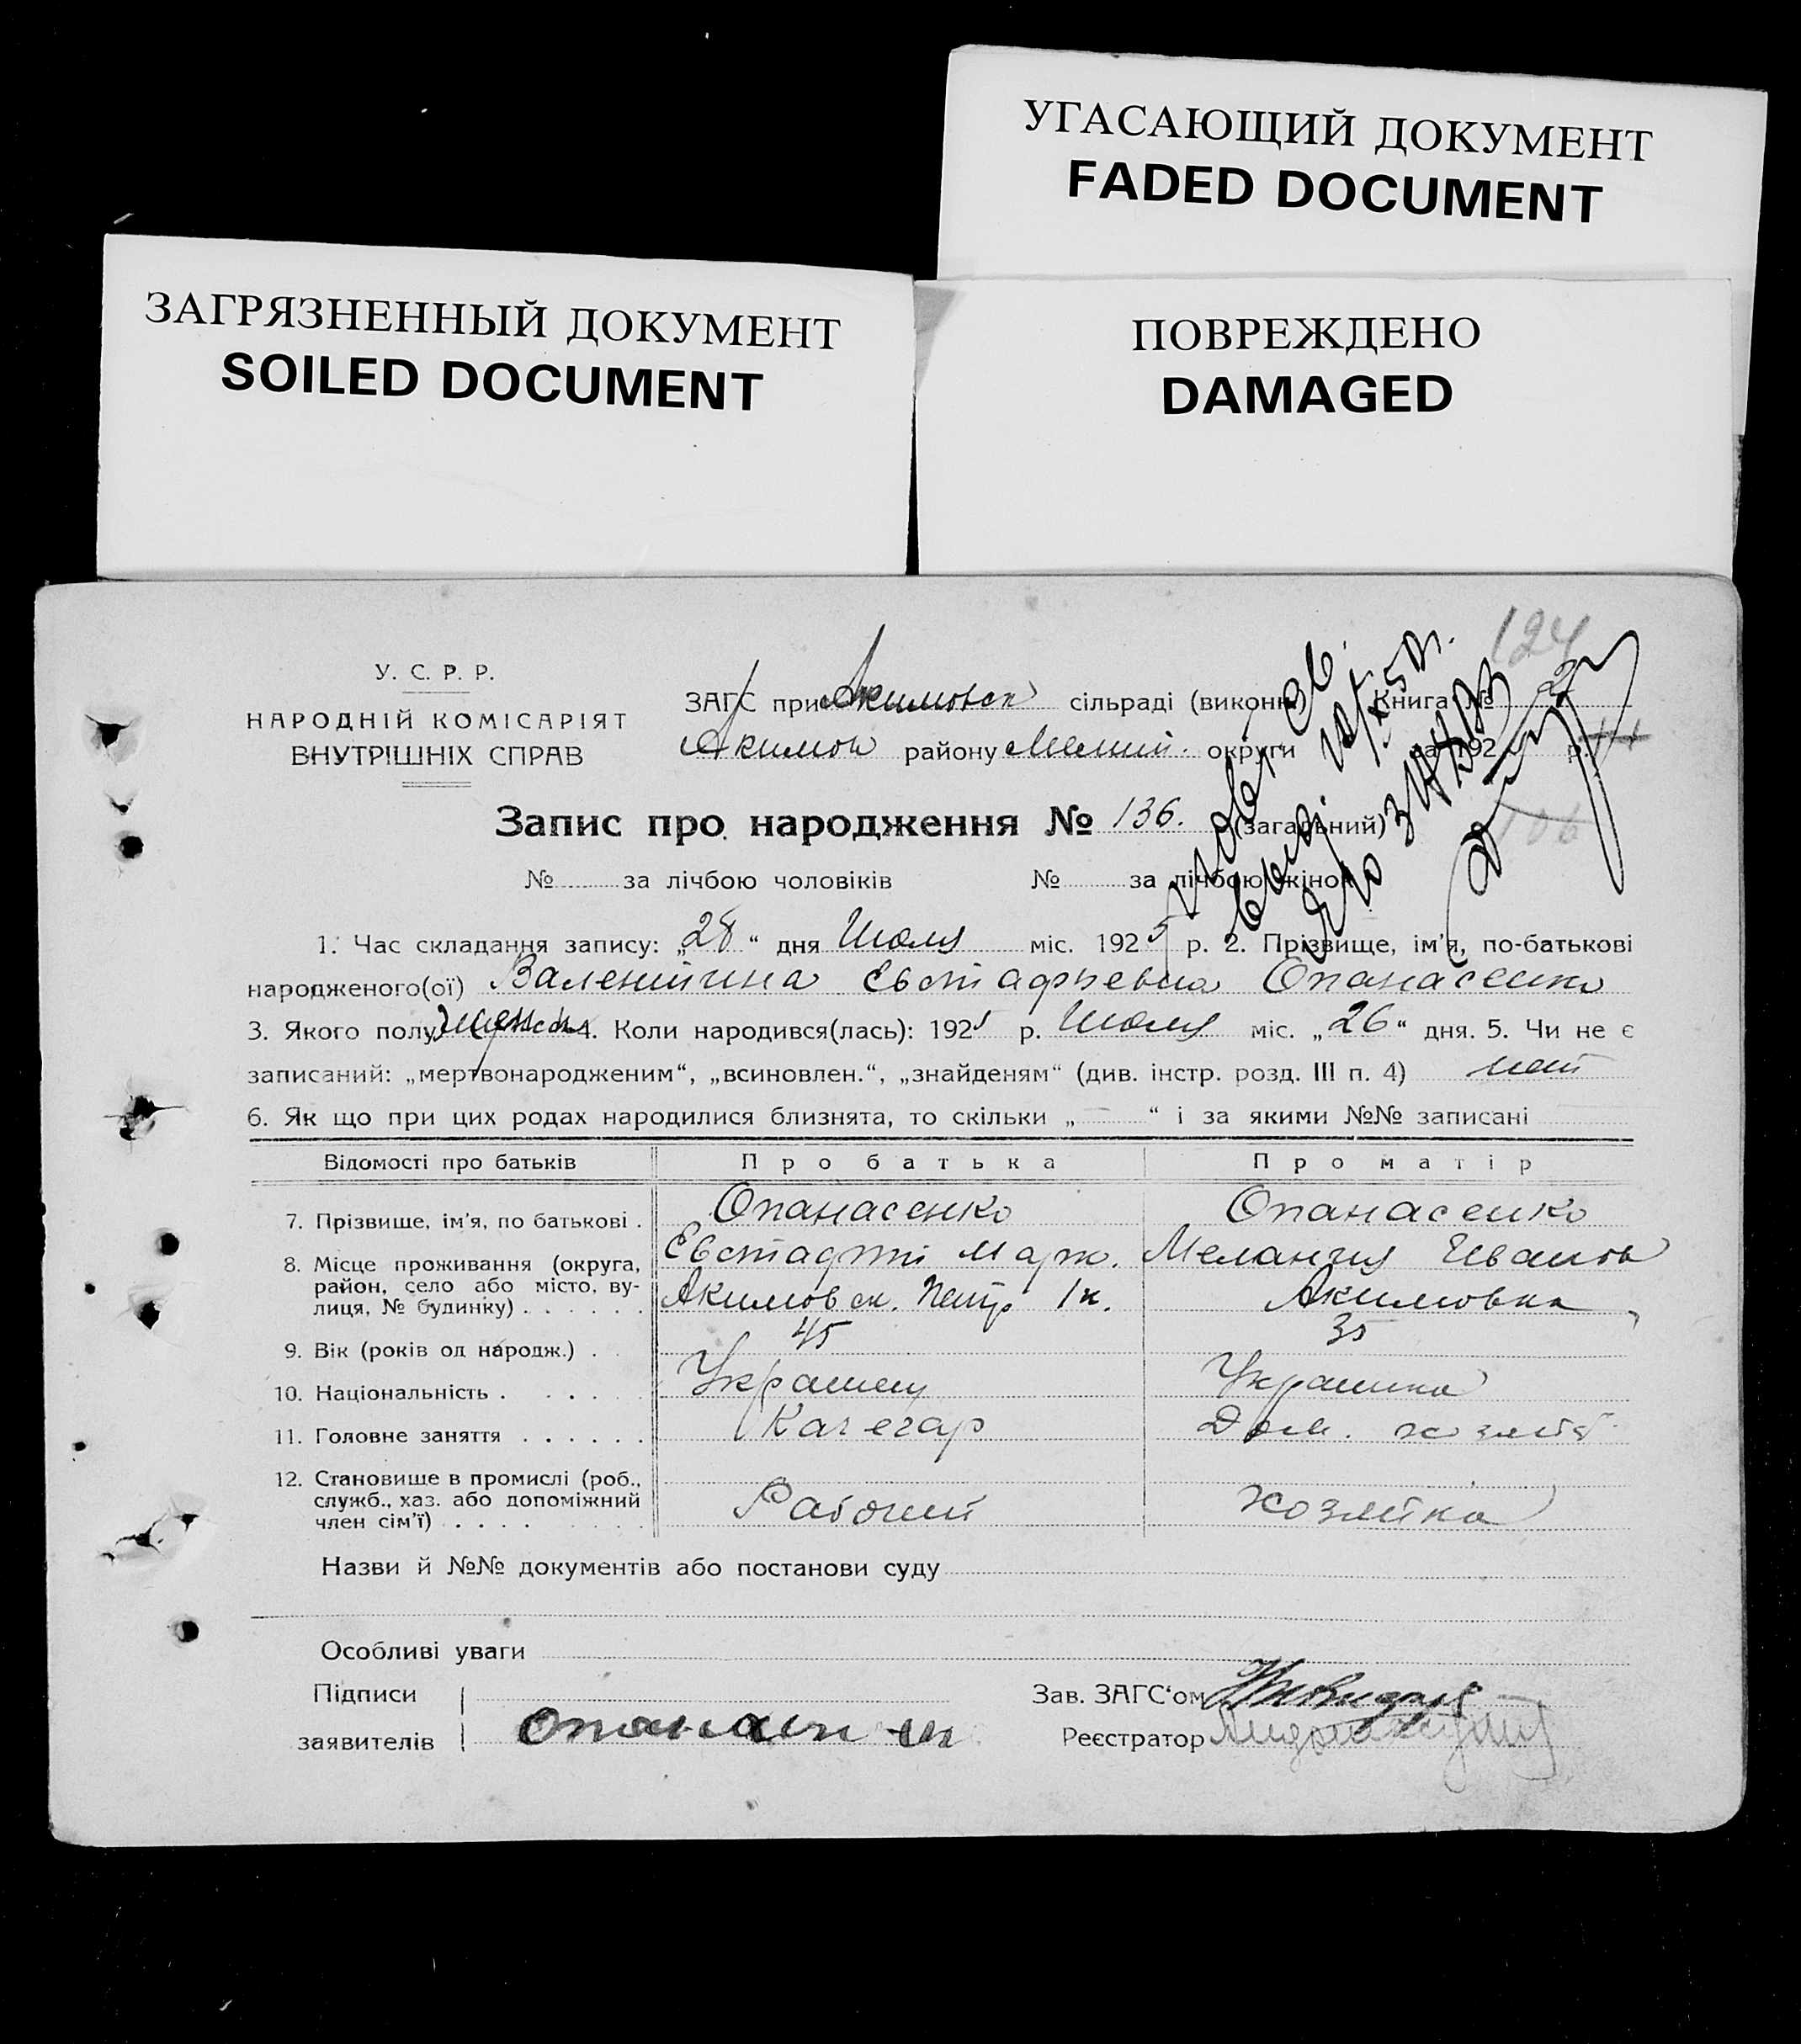 УГАСАЮЩИЙ ДОКУМЕНТ
FADED DOCUMENT
ЗАГРЯЗНЕННЫЙ ДОКУМЕНТ
SOILED DOCUMENT
ПОВРЕЖДЕНО
DAMAGED
124
У. С. Р. Р.
НАРОДНІЙ КОМІСАРІЯТ
ВНУТРІШНІХ СПРАВ
ЗАГС при Акимовск сільраді (виконк.) Книга № 2
Акимов району Мелит. округи за 192 р.
Запис про народження № 136. (загальний)
106
№ за лічбою чоловіків № за лічбою жінок
1. Час складання запису: „28“ дня Июля міс. 1925 р. 2. Прізвище, ім'я, по-батькові
народженого(ої) Валентина Евстафьевна Опанасенко
3. Якого полу женск 4. Коли народився(лась): 1925 р. Июля міс. „26“ дня. 5. Чи не є
записаний: „мертвонародженим“, „всиновлен.“, „знайденям“ (див. інстр. розд. III п. 4) нет
6. Як що при цих родах народилися близнята, то скільки „ “ і за якими №№ записані
Відомості про батьків Про батька Про матір
7. Прізвище, ім'я, по батькові . Опанасенко Опанасенко
Евстафий Марк. Мелания Иванов
8. Місце проживання (округа, район, село або місто, вулиця, № будинку) . . . . . . Акимовск. 1к. Акимовка
9. Вік (років од народж.) . . 45 35
10. Національність . . . . Украинец Украинка
11. Головне заняття . . . . . . Качегар Дом. хозяйс
12. Становище в промислі (роб., служб., хаз. або допоміжний член сім'ї) . . . . Рабочий хозяйка
Назви й №№ документів або постанови суду
Особливі уваги
Підписи
заявителів Опанасен
Зав. ЗАГС‘ом
Реєстратор